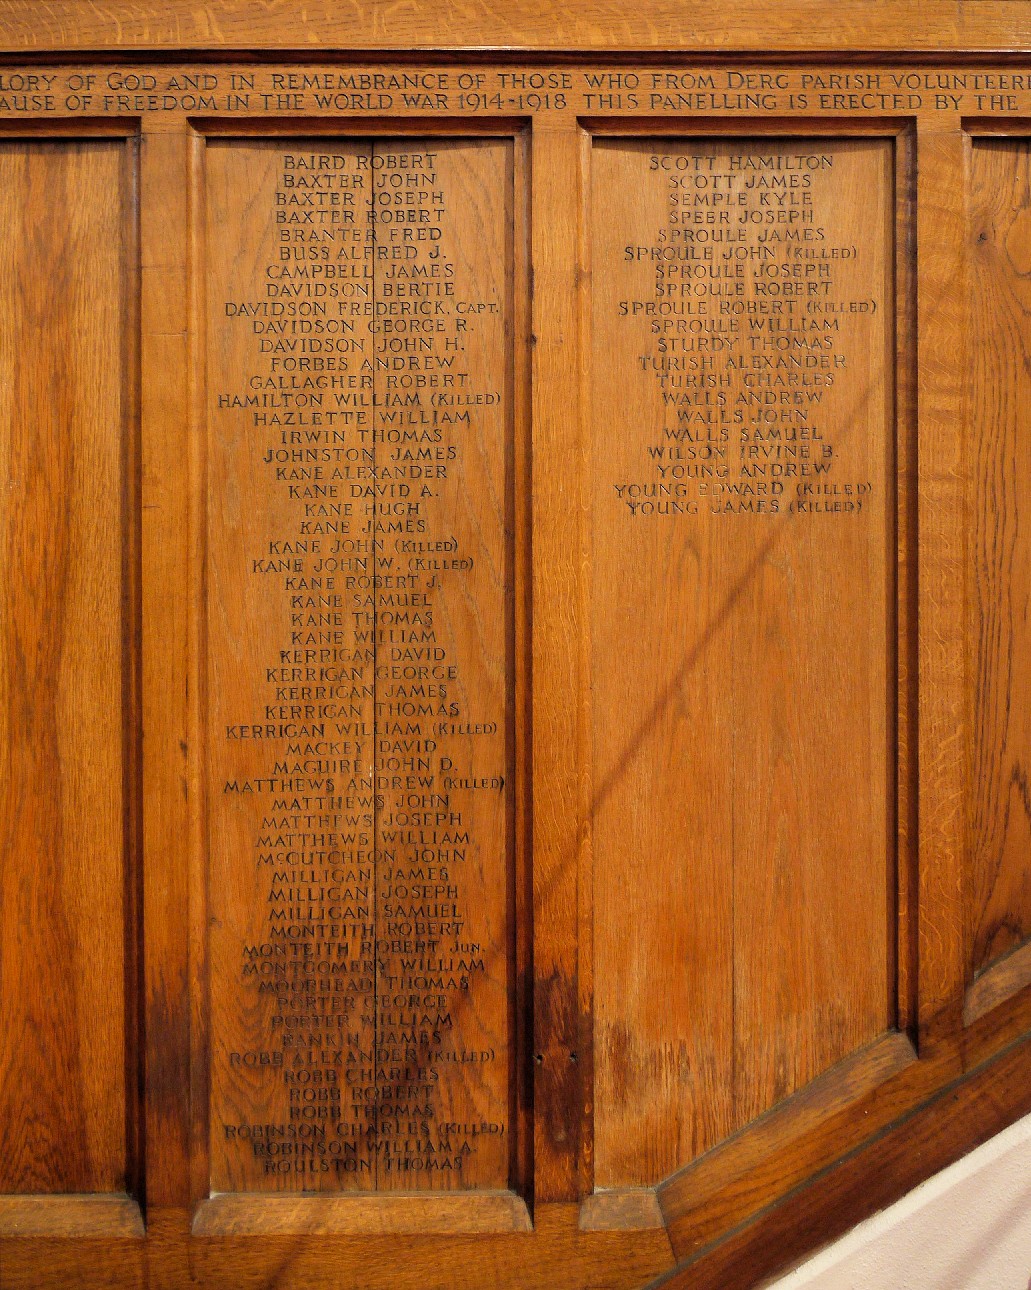 LORY OF GOD AND IN REMEMBRANCE OF THOSE WHO FROM DERG PARISH VOLUNTEER
AUSE OF FREEDOM IN THE WORLD WAR 1914-1918 THIS PANELLING IS ERECTED BY THE
BAIRD ROBERT
BAXTER JOHN
BAXTER JOSEPH
BAXTER ROBERT
BRANTER FRED
BUSS ALFRED J.
CAMPBELL JAMES
DAVIDSON BERTIE
DAVIDSON FREDERICK, CAPT.
DAVIDSON GEORGE R.
DAVIDSON JOHN H.
FORBES ANDREW
GALLAGHER ROBERT
HAMILTON WILLIAM (KILLED)
HAZLETTE WILLIAM
IRWIN THOMAS
JOHNSTON JAMES
KANE ALEXANDER
KANE DAVID A.
KANE HUGH
KANE JAMES
KANE JOHN (KILLED)
KANE JOHN W. (KILLED)
KANE ROBERT J.
KANE SAMUEL
KANE THOMAS
KANE WILLIAM
KERRIGAN DAVID
KERRIGAN GEORGE
KERRIGAN JAMES
KERRIGAN THOMAS
KERRIGAN WILLIAM (KILLED)
MACKEY DAVID
MAGUIRE JOHN D.
MATTHEWS ANDREW (KILLED)
MATTHEWS JOHN
MATTHEWS JOSEPH
MATTHEWS WILLIAM
McCUTCHEON JOHN
MILLIGAN JAMES
MILLIGAN JOSEPH
MILLIGAN SAMUEL
MONTEITH ROBERT
MONTEITH ROBERT JUN.
MONTGOMERY WILLIAM
MOORHEAD THOMAS
PORTER GEORGE
PORTER WILLIAM
RANKIN JAMES
ROBB ALEXANDER (KILLED)
ROBB CHARLES
ROBB ROBERT
ROBB THOMAS
ROBINSON CHARLES (KILLED)
ROBINSON WILLIAM A.
ROULSTON THOMAS
SCOTT HAMILTON
SCOTT JAMES
SEMPLE KYLE
SPEER JOSEPH
SPROULE JAMES
SPROULE JOHN (KILLED)
SPROULE JOSEPH
SPROULE ROBERT
SPROULE ROBERT (KILLED)
SPROULE WILLIAM
STURDY THOMAS
TURISH ALEXANDER
TURISH CHARLES
WALLS ANDREW
WALLS JOHN
WALLS SAMUEL
WILSON IRVINE B.
YOUNG ANDREW
YOUNG EDWARD (KILLED)
YOUNG JAMES (KILLED)